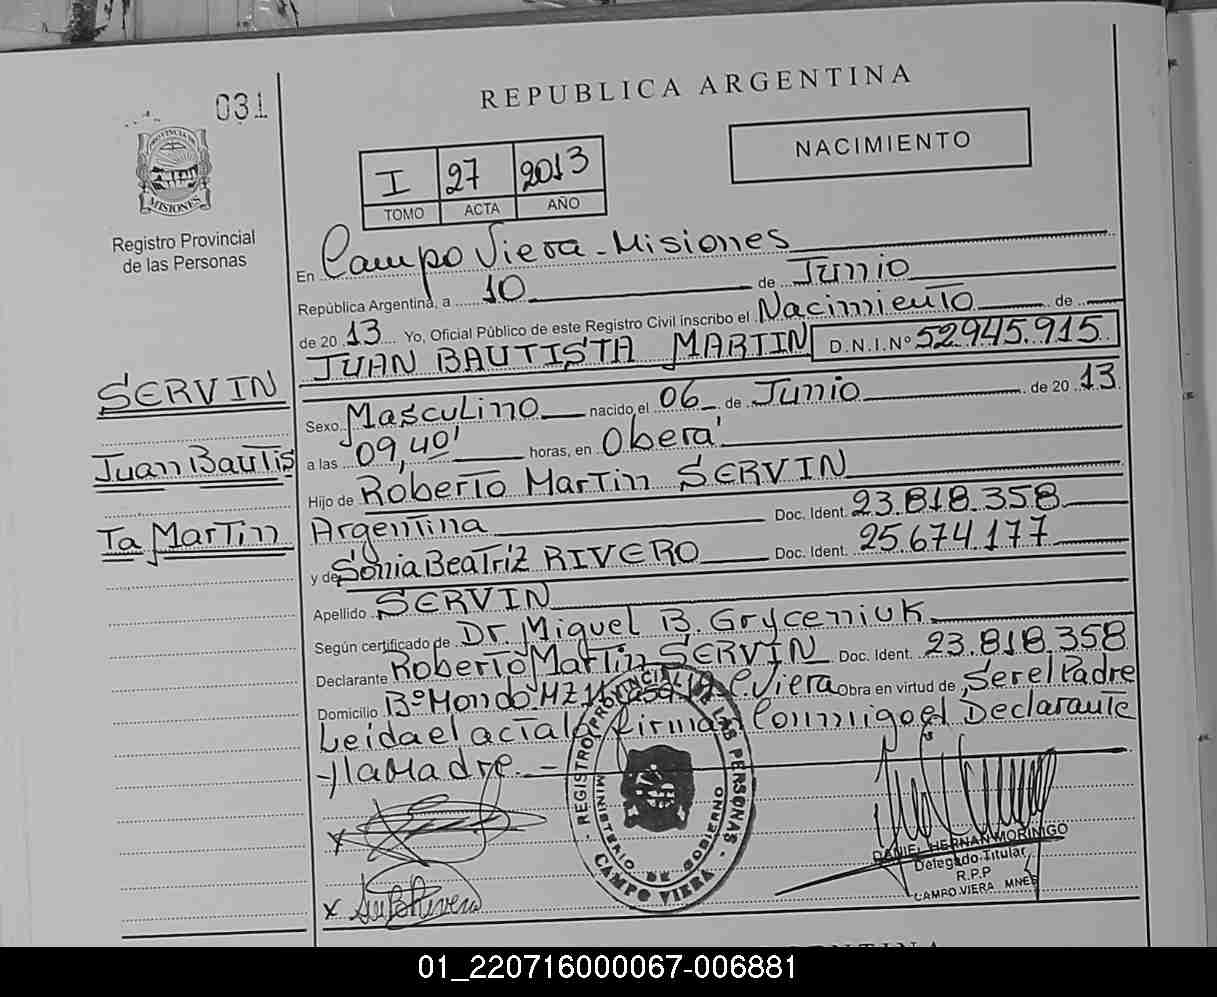 031
REPUBLICA ARGENTINA
NACIMIENTO
PROVINCIA DE
MISIONES
I 27 2013
TOMO ACTA AÑO
Registro Provincial
de las Personas
En Campo Viera - Misiones
República Argentina, a 10 de Junio
de 20 13 Yo, Oficial Público de este Registro Civil inscribo el Nacimiento de
JUAN BAUTISTA MARTIN D.N.I.Nº 52.945.915
SERVIN
Sexo Masculino nacido el 06 de Junio de 20 13
a las 09,40' horas, en Oberá
Juan Bautis
Hijo de Roberto Martin SERVIN
Argentina Doc. Ident. 23.818.358
Ta Martin
y de Sonia Beatriz RIVERO Doc. Ident. 25.674.177
Apellido SERVIN
Según certificado de Dr. Miguel B. Gryceniuk
Declarante Roberto Martin SERVIN Doc. Ident. 23.818.358
Domicilio Bº Mondo Mz C. Viera Obra en virtud de Ser el Padre
Leida el acta la firman Conmigo el Declarante
y la Madre. -
REGISTRO PROVINCIAL DE LAS PERSONAS
MINISTERIO DE GOBIERNO
CAMPO VIERA
x
x Rivero
DANIEL HERNAN MORINIGO
Delegado Titular
R.P.P
CAMPO VIERA MNES
01_220716000067-006881